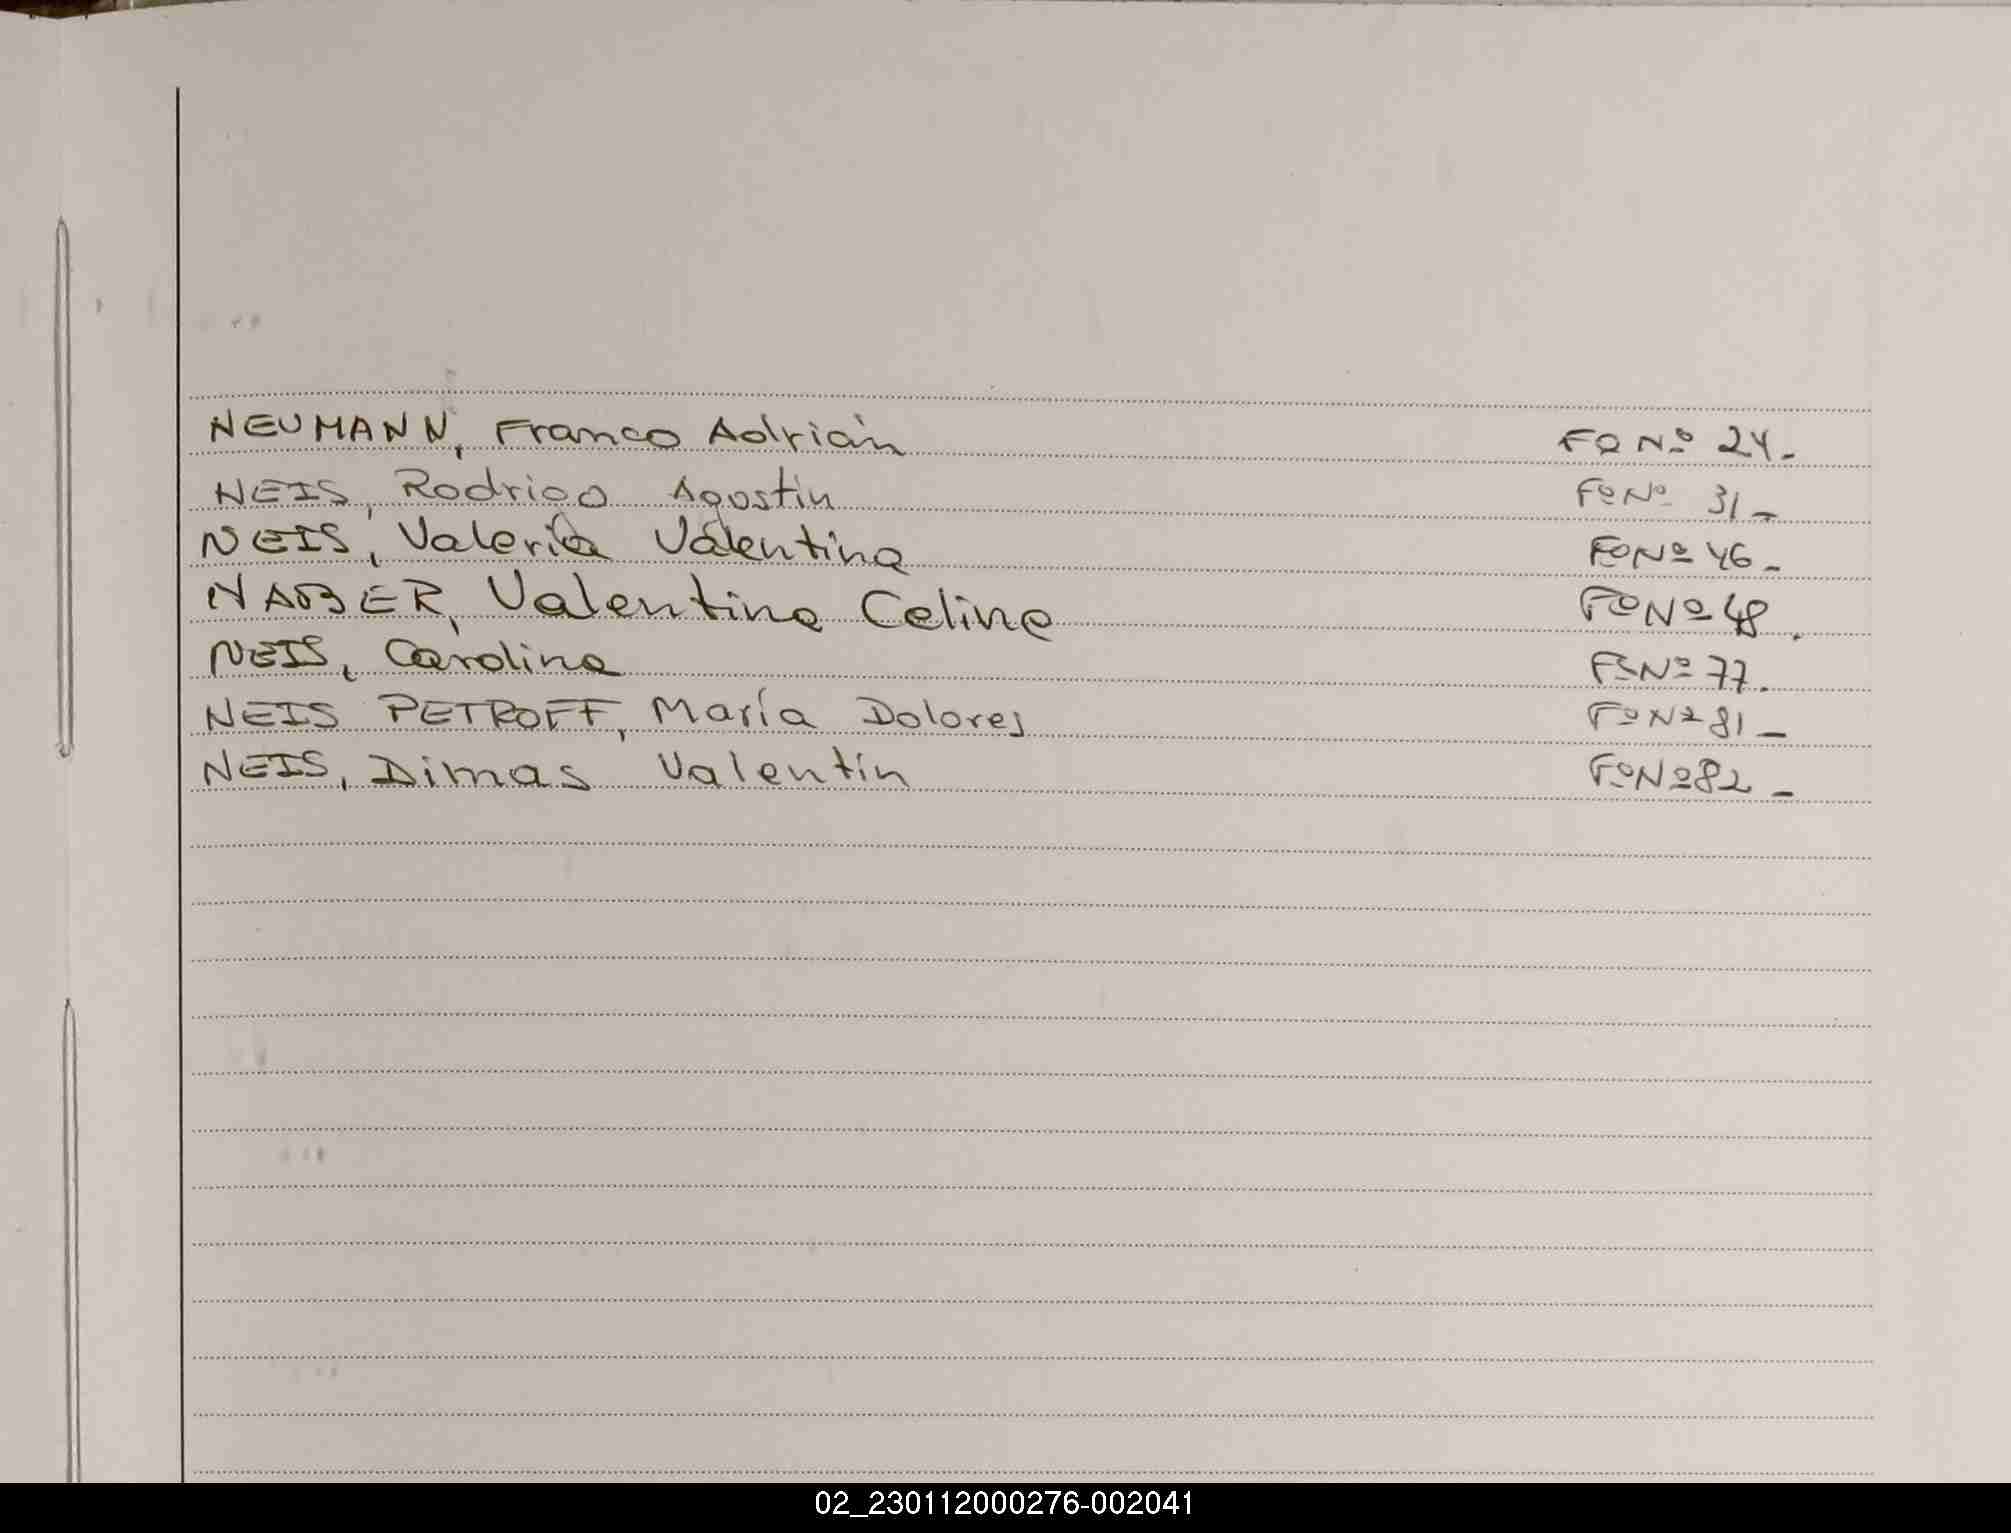 NEUMANN, Franco Adrián Fº Nº 24.-
NEIS, Rodrigo Agostin Fº Nº 31_
NEIS, Valeria Valentina Fº Nº 46_
NABER, Valentina Celine Fº Nº 48.
NEIS, Carolina Fº Nº 77.
NEIS PETROFF, María Dolores Fº Nº 81_
NEIS, Dimas Valentín Fº Nº 82_
02_230112000276-002041